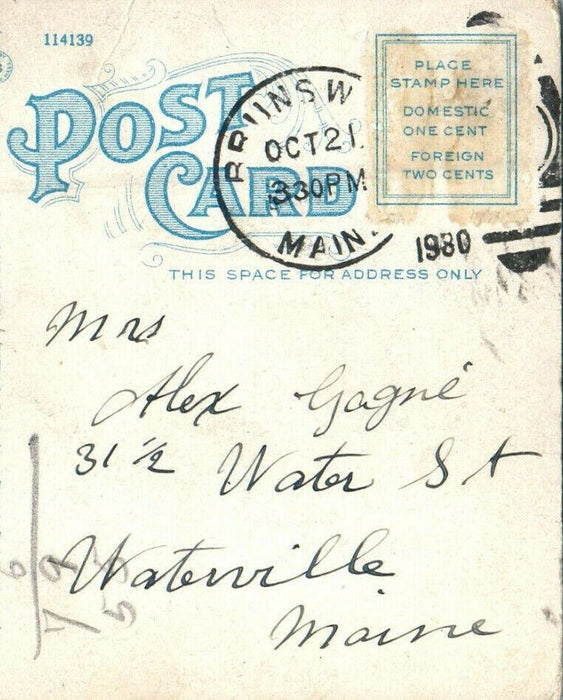 114139
POST CARD
BRUNSWI
OCT 21.
330 PM
MAINE
1930
PLACE
STAMP HERE
DOMESTIC
ONE CENT
FOREIGN
TWO CENTS
THIS SPACE FOR ADDRESS ONLY
Mrs
Alex Gagné
31 ½ Water St
Waterville
Maine